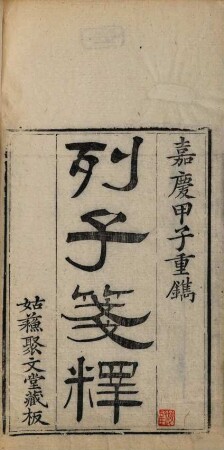 嘉慶甲子重鐫
列子箋釋
姑蘇聚文堂藏板